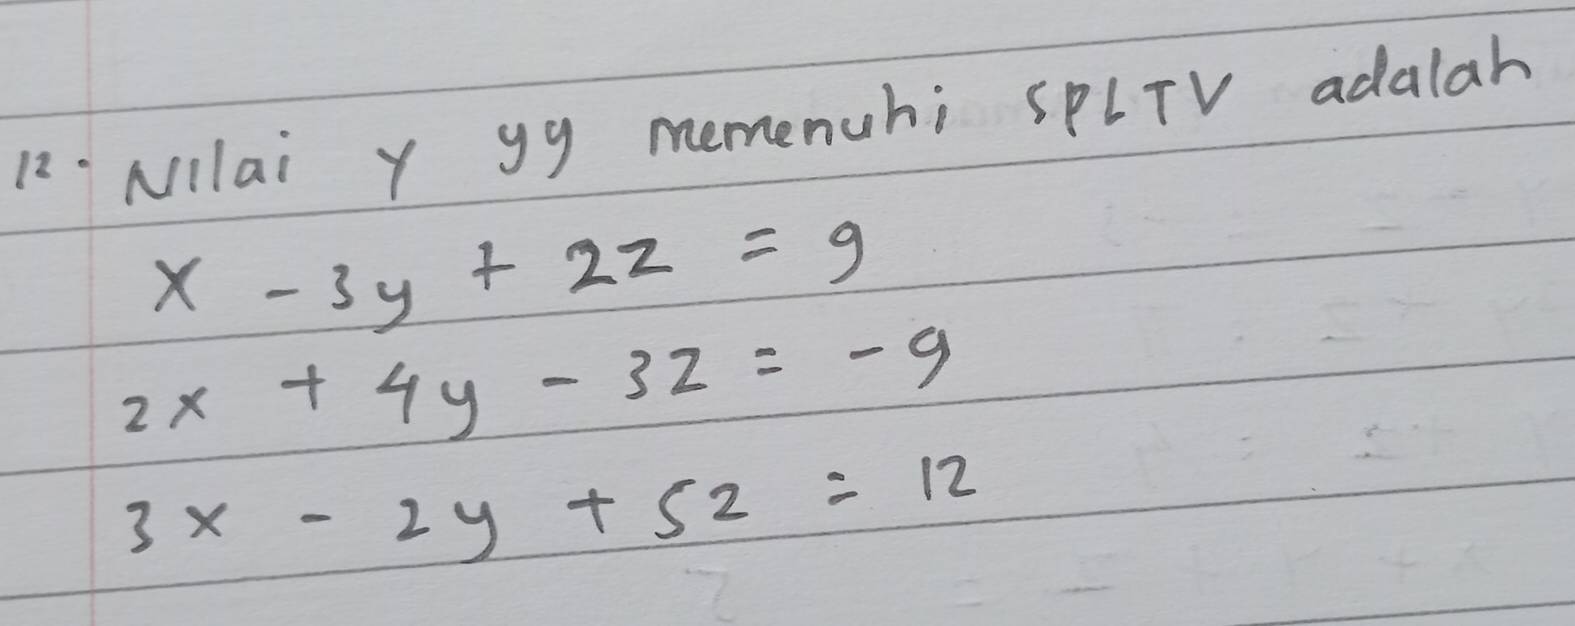 12. Nilai y yg memenuhi SPLTV adalah
x - 3y + 2z = 9
2x + 4y - 3z = -9
3x - 2y + 5z = 12